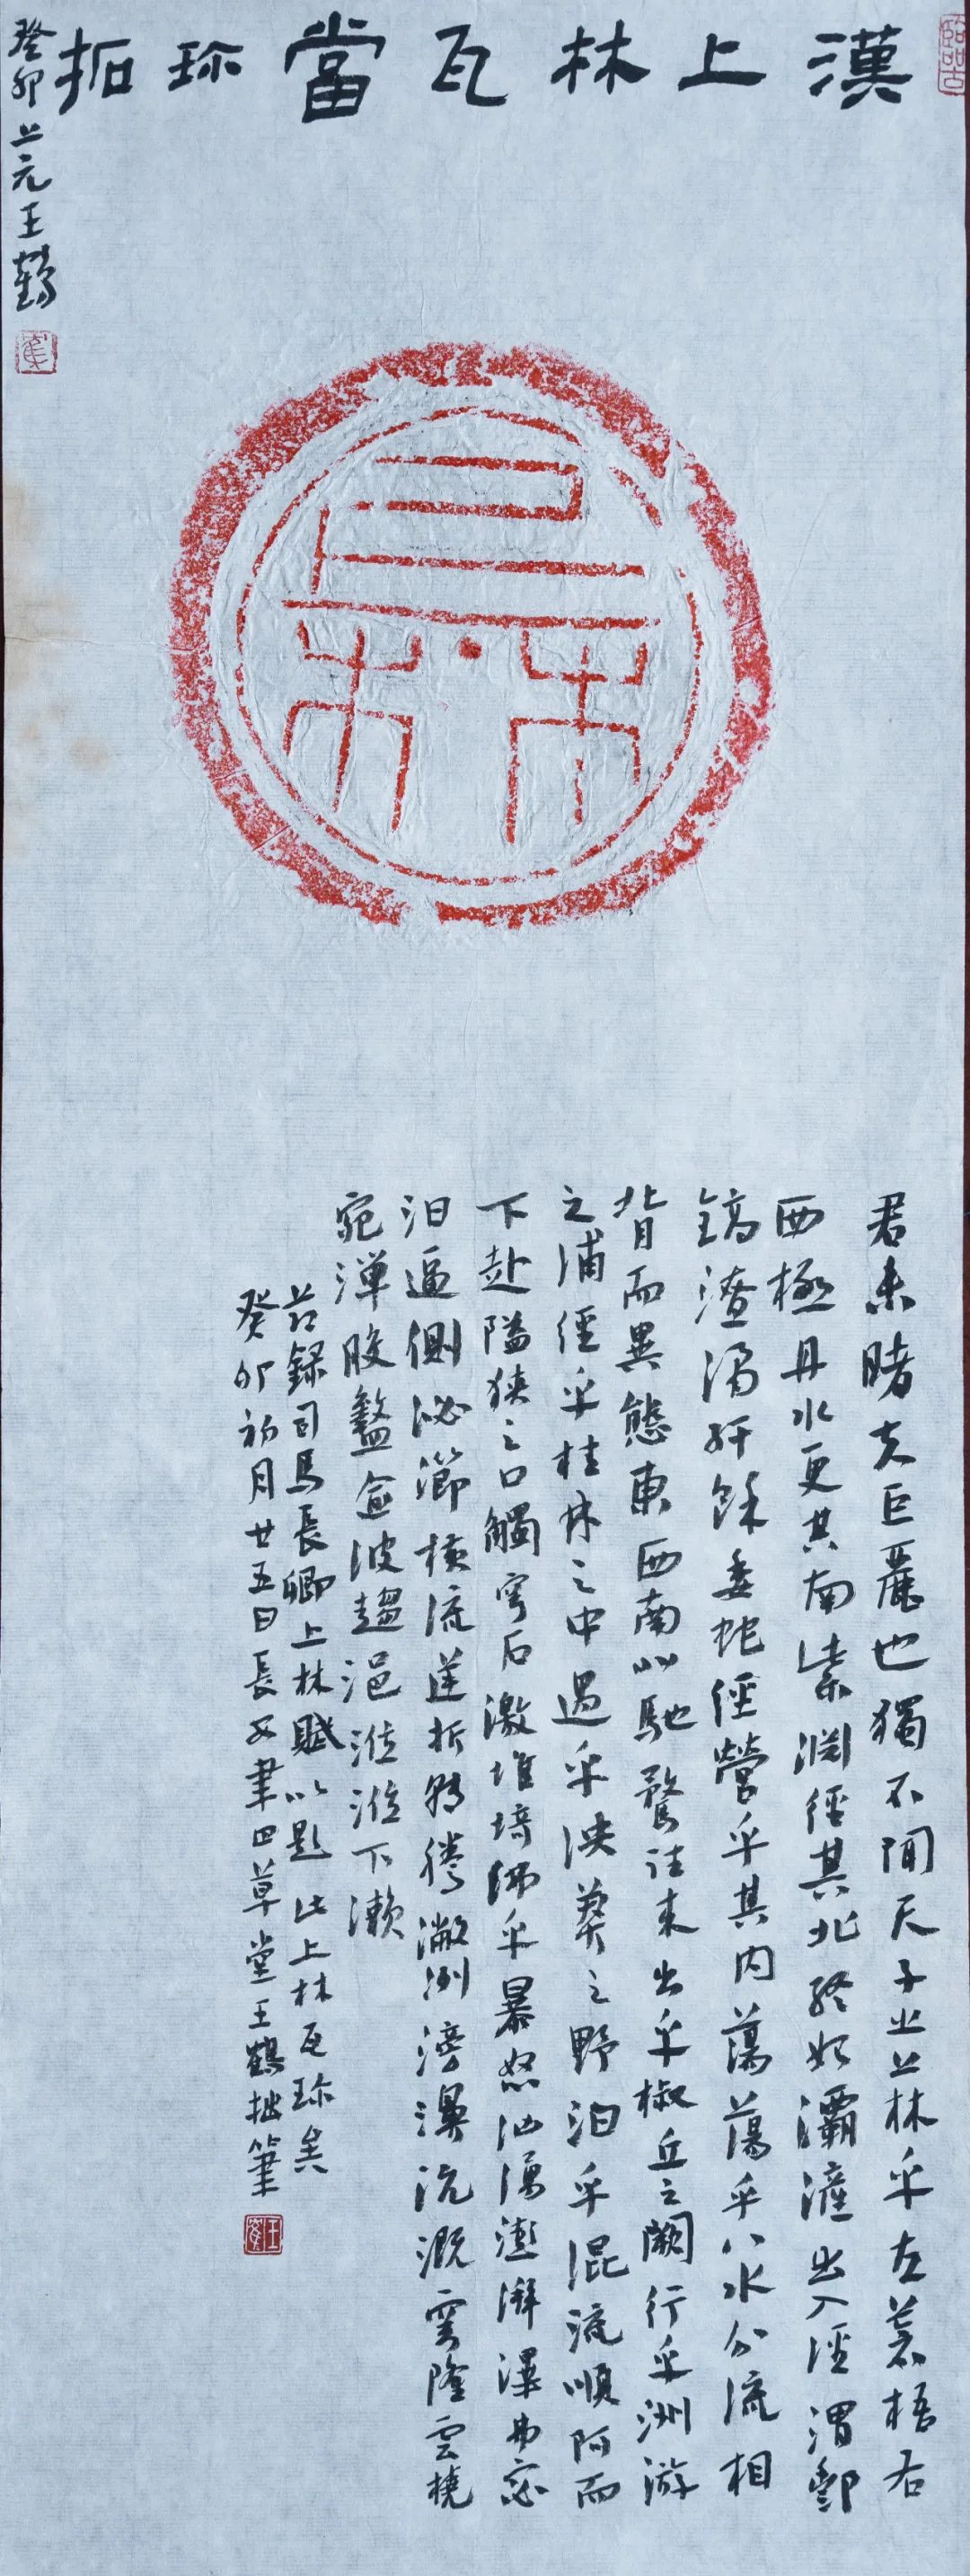 漢上林瓦當珎拓
癸卯上元王鶴
上林
君未睹夫巨麗也獨不聞天子之上林乎左蒼梧右
西極丹水更其南紫淵徑其北終始灞滻出入涇渭酆
鎬潦潏紆餘委蛇經營乎其内蕩蕩乎八水分流相
背而異態東西南北馳騖往來出乎椒丘之闕行乎洲淤
之浦徑乎桂林之中過乎泱莽之野汩乎混流順阿而
下赴隘狹之口觸穹石激堆埼沸乎暴怒洶湧澎湃滭弗宓
汩逼側泌瀄橫流逆折轉騰潎洌滂濞沆溉穹隆雲橈
宛潬膠盭逾波趨浥涖涖下瀨
茲錄司馬長卿上林賦以題此上林瓦珎矣
癸卯初月廿五日長安聿四草堂王鶴拙筆